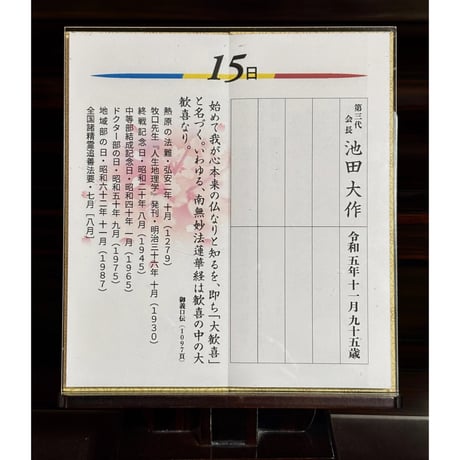 15日
第三代
会長 池田大作 令和五年十一月九十五歳
始めて我が心本来の仏なりと知るを、即ち「大歓喜」
と名づく。いわゆる、南無妙法蓮華経は歓喜の中の大
歓喜なり。
御義口伝(1097頁)
熱原の法難・弘安二年 十月(1279)
牧口先生『人生地理学』発刊・明治三十六年 十月(1930)
終戦記念日・昭和二十年 八月(1945)
中等部結成記念日・昭和四十年 一月(1965)
ドクター部の日・昭和五十年 九月(1975)
地域部の日・昭和六十二年 十一月(1987)
全国諸精霊追善法要・七月[八月]